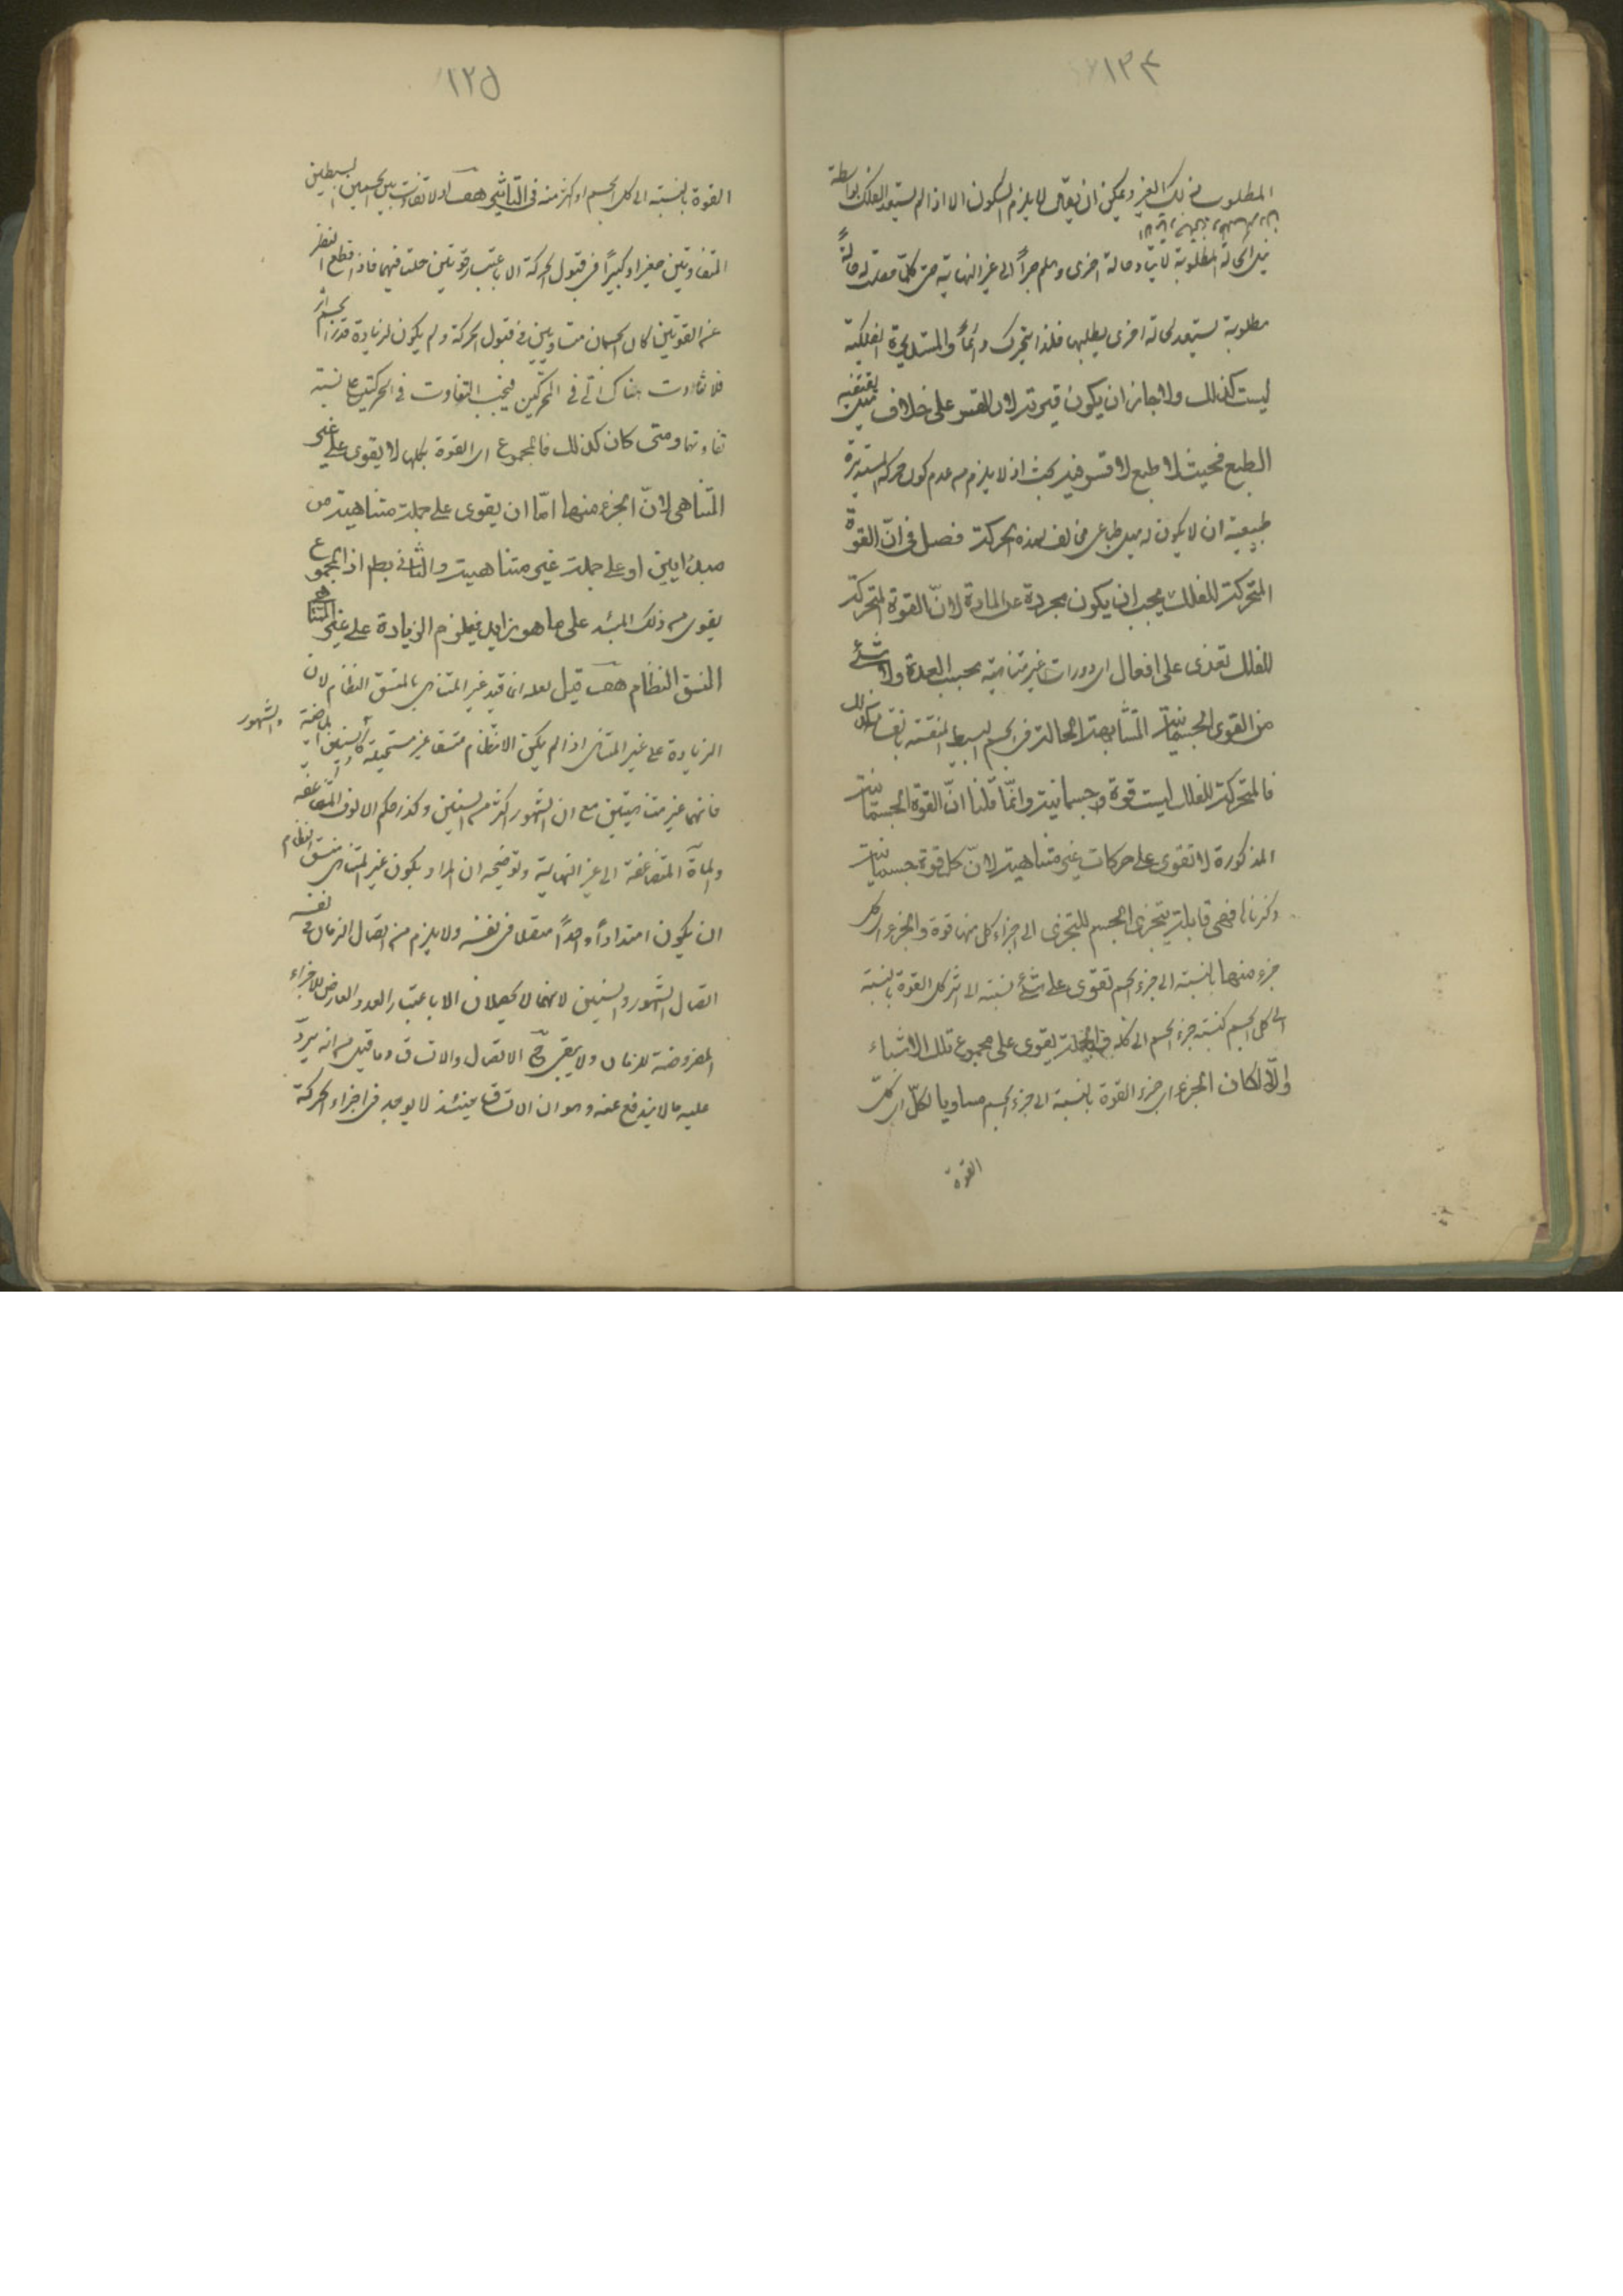 ١٢٤
المطلوب ذلك الغير ويمكن ان يقال لا يلزم السكون الا اذا لم يستعد الفلك بواسطة
نيل الحالة المطلوبة لايتاد حالة اخرى وهلم جراً الى غير النهاية حتى كلما حصلت له حالة
مطلوبة يستعد لحالة اخرى يطلبها فلذا يتحرك دائماً والمستديرة الفلكية
ليست كذلك ولا جائز ان يكون قسرية لان القسر على خلاف ميل يقتضيه
الطبع فحيث لا طبع لا قسر فيه بحث اذ لا يلزم من عدم كون حركته المستديرة
طبيعية ان لا يكون له ميل طباعى مخالف لهذه الحركة فصل فى انّ القوة
المتحركة للفلك يجب ان يكون مجردة عن المادة لانّ القوة المتحركة
للفلك تقوى على افعال اى دورات غير متناهية بحسب العدة ولا شئ
من القوى الجسمانية المتشابهة الحالة فى الجسم البسيط المنقسمة بانقسامه كذلك
فالمتحركة للفلك ليست قوة جسمانية وانّما قلنا انّ القوة الجسمانية
المذكورة لا تقوى على حركات غير متناهية لانّ كل قوة جسمانية
ذكرناها فهى قابلة يتجزى الجسم للتجزى الى اجزاء كل منها قوة والجزء اى كل
جزء منها بالنسبة الى جزء الجسم تقوى على شئ نسبته الى اثر كل القوة بالنسبة
الى كل الجسم كنسبة جزء الجسم الى كله فالجملة يقوى على مجموع تلك الاشياء
والّا لكان الجزء اى جزء القوة بالنسبة الى جزء الجسم مساويا لكلّ اى كلّ
القوة
١٢٥
القوة بالنسبة الى كل الجسم او اكثر منه فى التاثير هف اذ لا تفاوت بين الجسمين البسيطين
المتفاوتين صغيرا وكبيراً فى قبول الحركة الا باعتبار قوتين حلتا فيهما فاذا قطع النظر
عن القوتين كان الجسمان متساويين فى قبول الحركة ولم يكون لزيادة قدر الجسم اثر
فلا تفاوت هناك الّا فى المحركين فيجب التفاوت فى الحركتين على نسبة
تفاوتهما ومتى كان كذلك فالمجموع اى القوة بكلها لا يقوى على غير
المتناهى لانّ الجزء منها امّا ان يقوى على جملة متناهية من
مبدأ معين او على جملة غير متناهية والثانى بط اذ المجموع
يقوى من ذلك المبدء على ما هو زايد فيلزم الزيادة على غير المتناهى
المتسق النظام هف قيل لعله انما قيد غير المتناهى بالمتسق النظام لان
الزيادة على غير المتناهى اذا لم يكن الانتظام متسقا غير مستحيلة كالسنين الماضية والشهور
فانهما غير متناهيتين مع ان الشهور اكثر من السنين وكذا حكم الالوف المتضاعفة
والمأة المتضاعفة الى غير النهاية وتوضيحه ان المراد بكون غير المتناهى متسق النظام
ان يكون امتداداً واحداً متصلا فى نفسه ولا يلزم من اتصال الزمان فى نفسه
اتصال الشهور والسنين لانهما لا يحصلان الا باعتبار العدد العارض للاجزاء
المفروضة للزمان ولا يبقى ح الاتصال والاتساق وما قيل من انه يردّ
عليه ما لا يندفع عنه وهو ان الاتساق حينئذ لا يوجد فى اجزاء الحركة